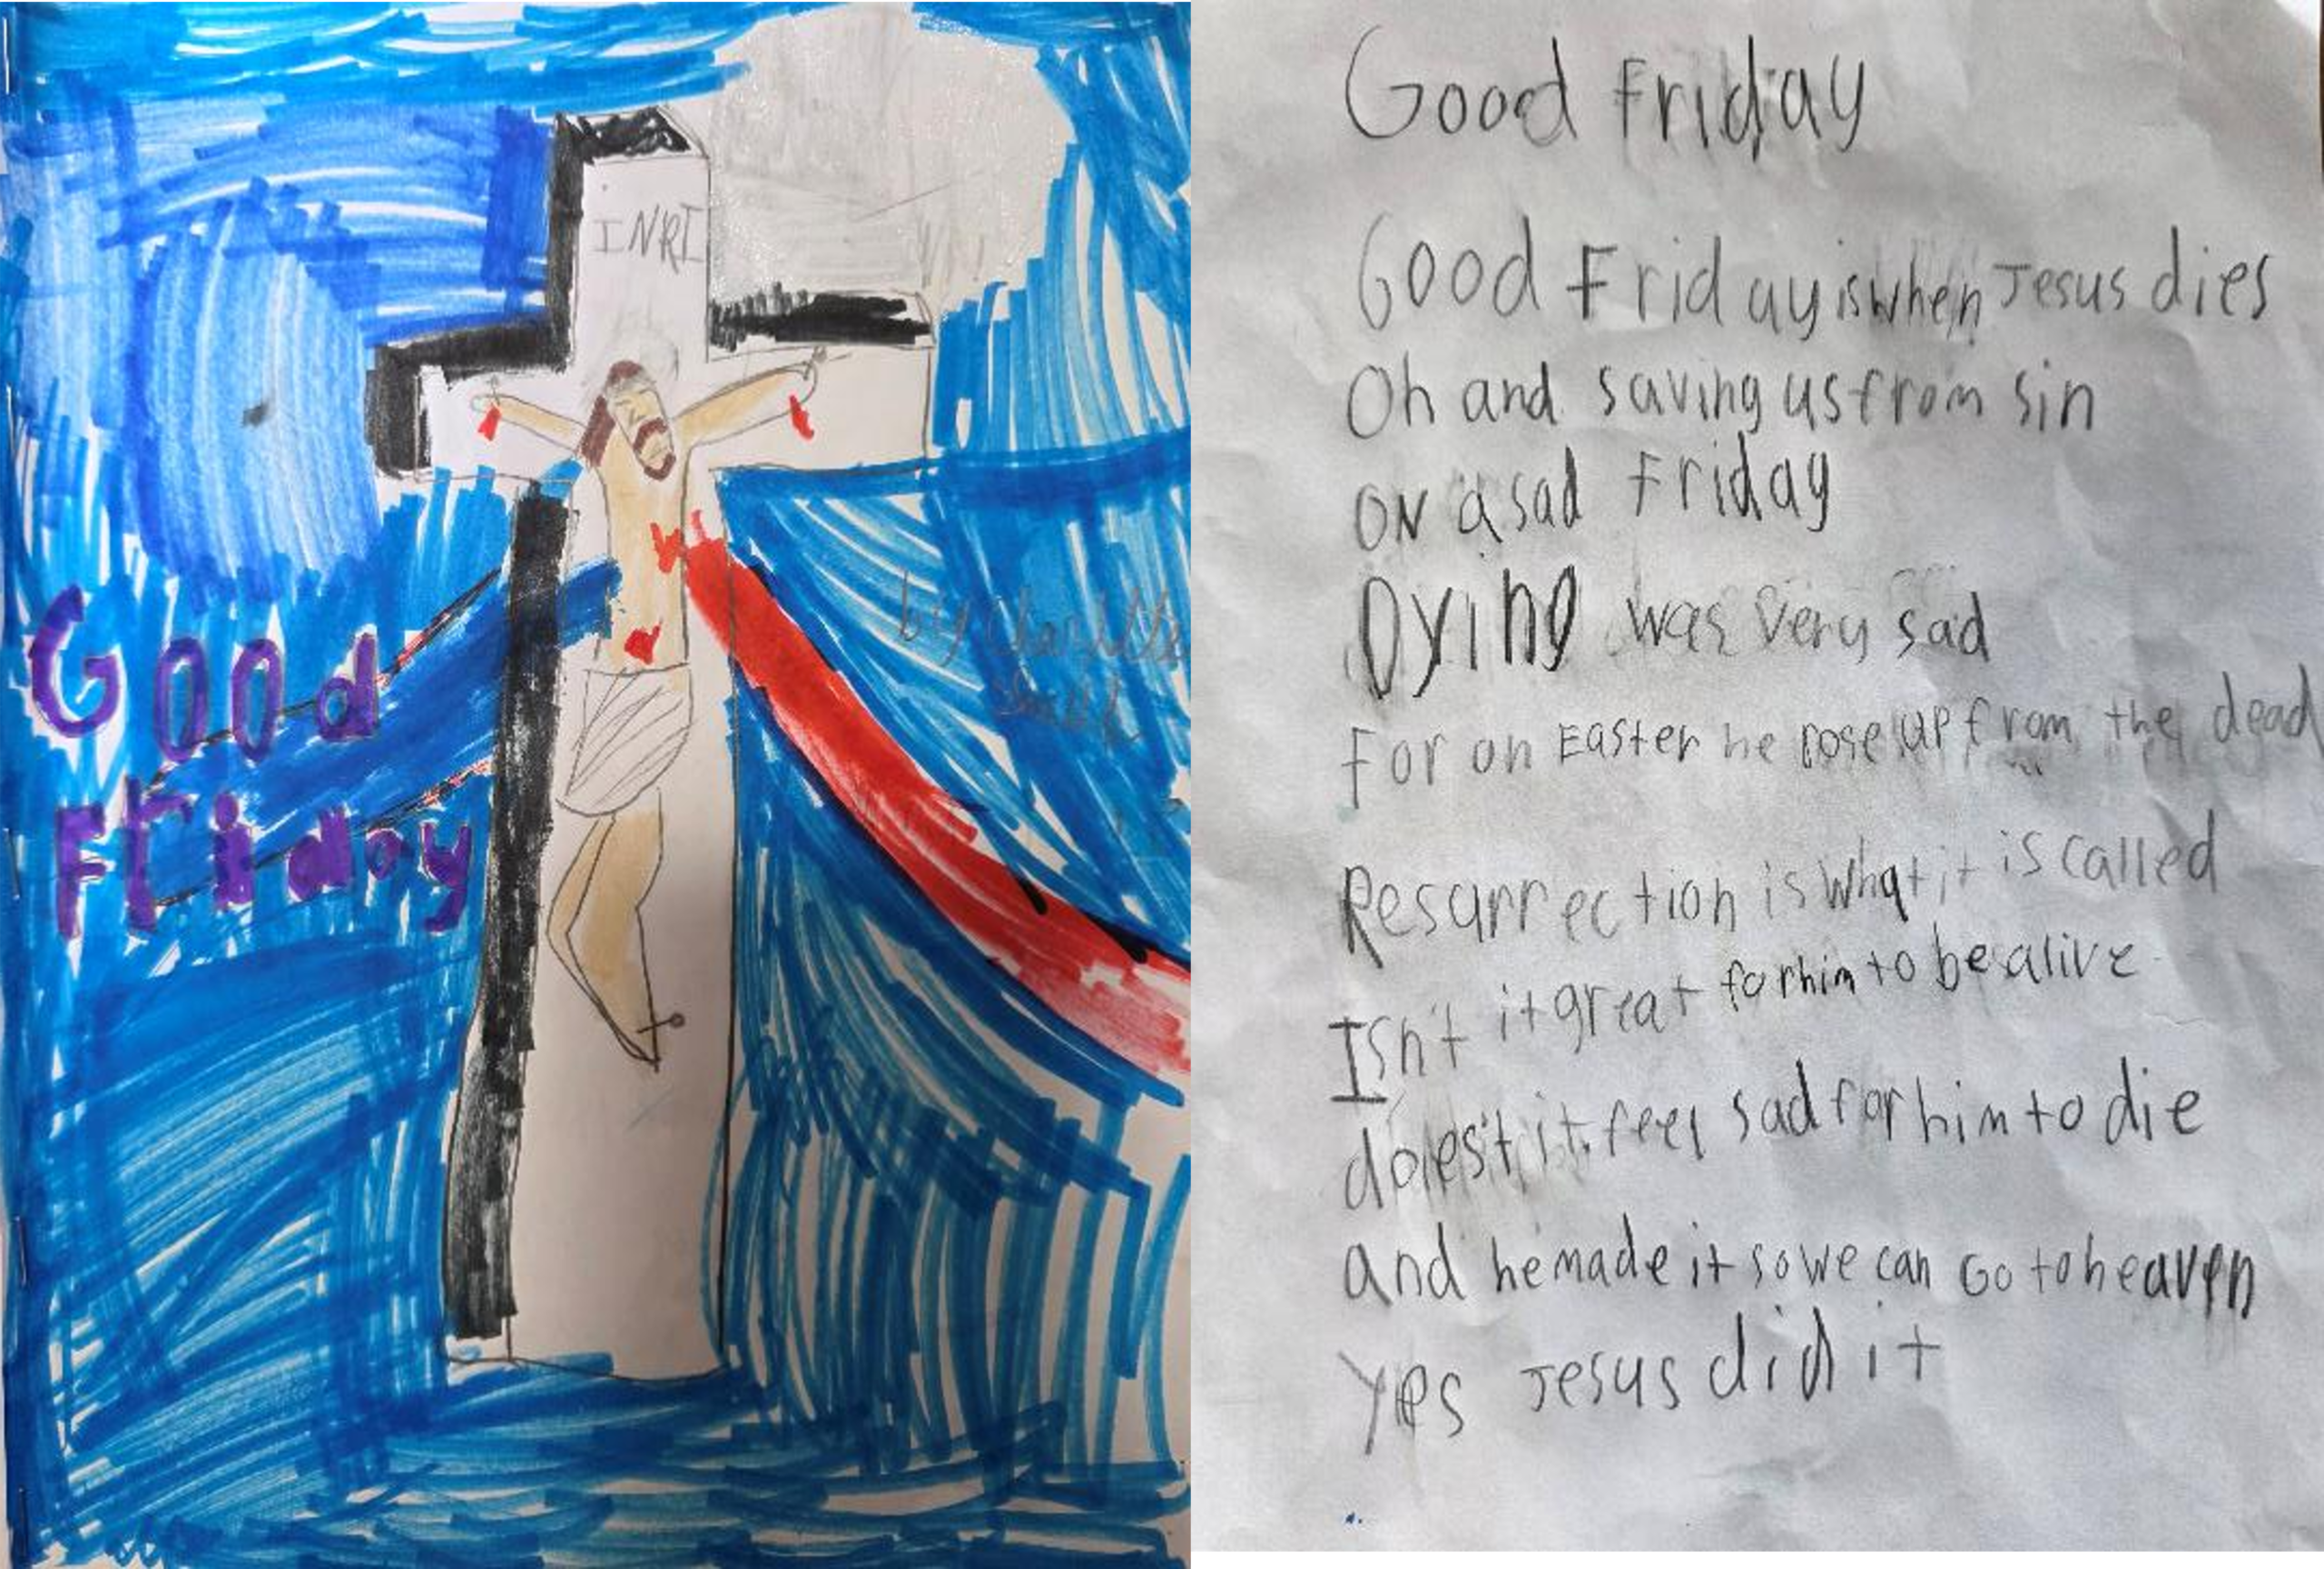 INRI
Good
Friday
by
Good Friday
Good Friday is when Jesus dies
Oh and saving us from sin
ON a sad Friday
Dying was very sad
For on Easter he rose up from the dead
Resurrection is what it is called
Isn't it great for him to be alive
doest it feel sad for him to die
and he made it so we can Go to heaven
Yes Jesus did it